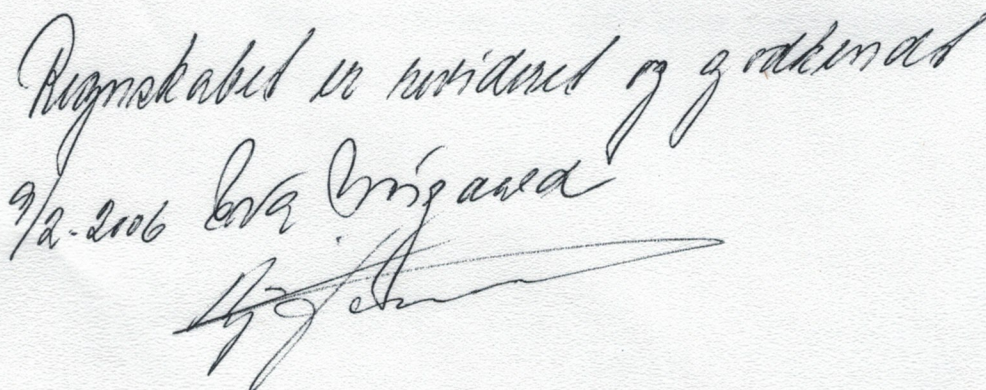 Regnskabet er revideret og godkendt
9/2-2006 Eva